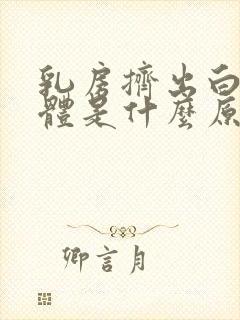 乳房擠出白
體是什麼原
卿言月